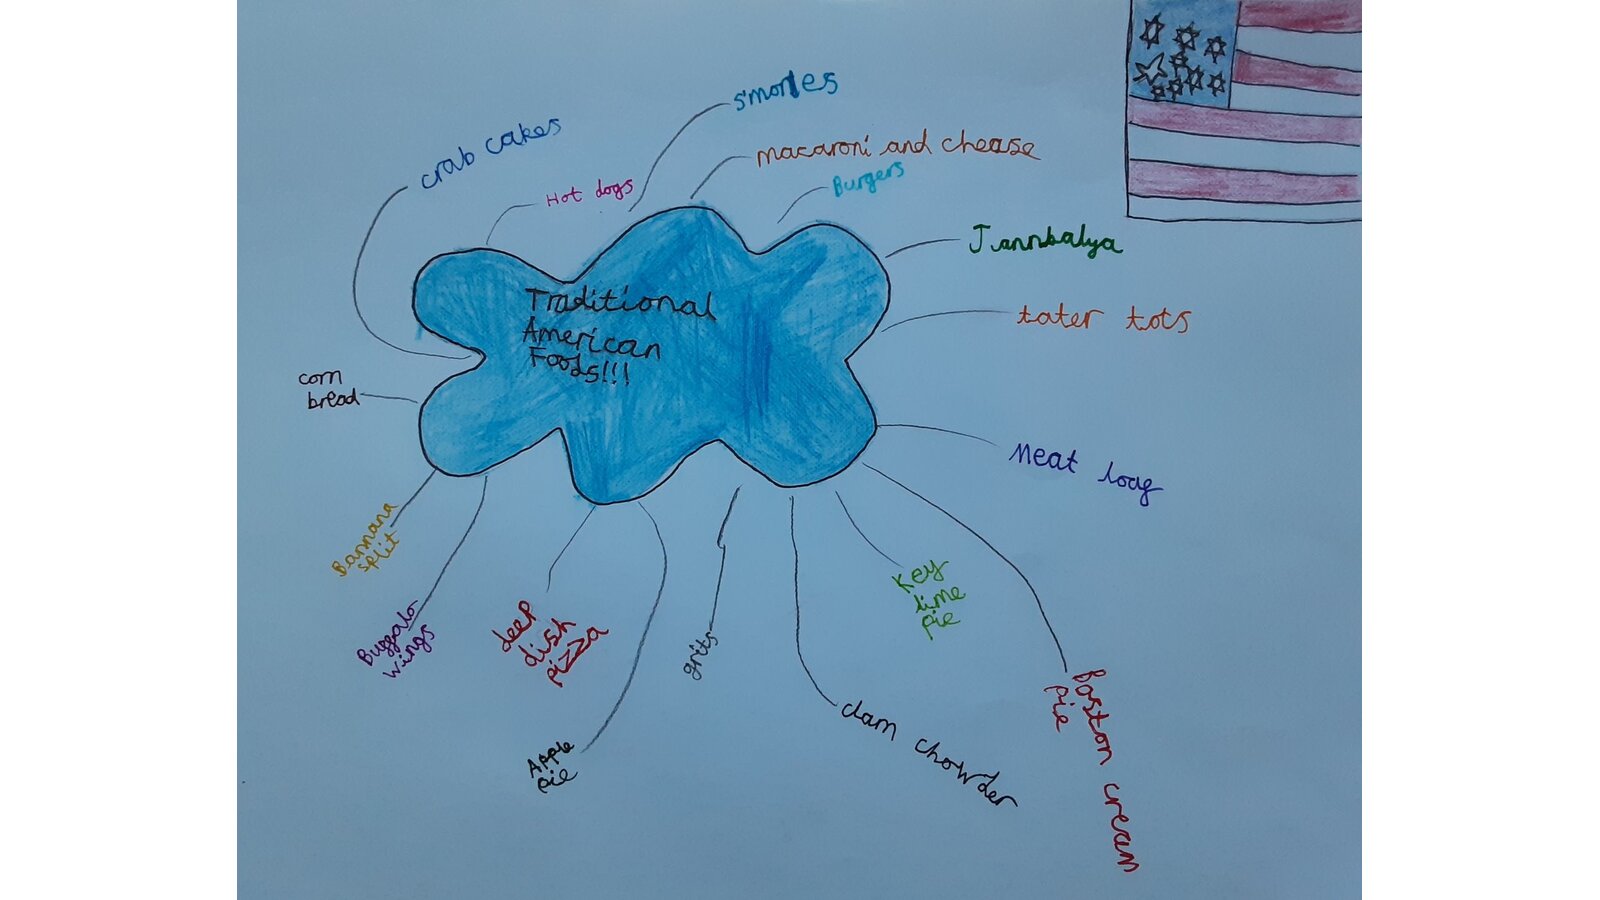 s'mores
crab cakes
macaroni and chease
Hot dogs
Burgers
Jannbalya
Traditional
American
Foods!!!
tater tots
corn
bread
Meat loag
Bannana
split
Buggalo
wings
deep
dish
pizza
Key
lime
pie
grits
Apple
pie
clam chowder
Boston cream
pie